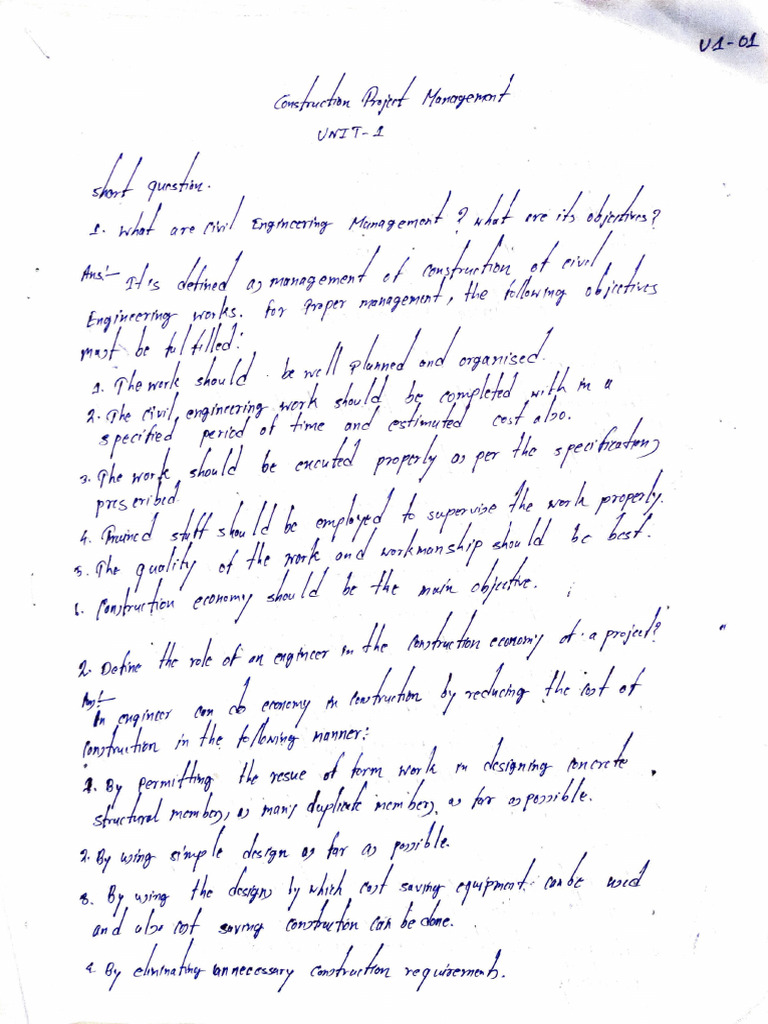 U1-01
Construction Project Management
UNIT-1
Short question.
1. What are Civil Engineering Management? What are its objectives?
Ans:- It is defined as management of construction of civil
Engineering works. For Proper management, the following objectives
must be fulfilled:
1. The work should be well planned and organised.
2. The civil engineering work should be completed with in a
specified period of time and estimated cost also.
3. The work should be excuted properly as per the specifications
prescribed.
4. Trained staff should be employed to supervise the work properly.
5. The quality of the work and workmanship should be best.
6. Construction economy should be the main objective.
2. Define the role of an engineer in the construction economy of a project?
Ans:-
An engineer can do economy in construction by reducing the cost of
construction in the following manner:
1. By permitting the resue of form work in designing concrete
structural members, as many duplicate members, as far as possible.
2. By using simple design as far as possible.
3. By using the designs by which cost saving equipment can be used
and also cost saving construction can be done.
4. By eliminating unnecessary construction requirements.